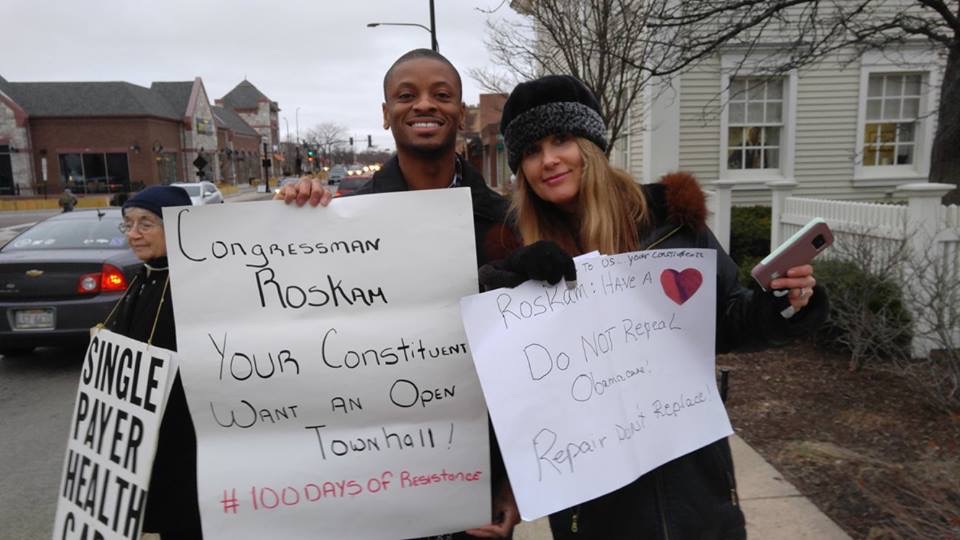 SINGLE
PAYER
HEALTH
CONGRESSMAN
ROSKAM
YOUR CONSTITUENT
WANT AN OPEN
TOWNHALL!
#100DAYS OF RESISTANCE
TO US... your CONSTITUENTS
ROSKAM: HAVE A
DO NOT Repeal
Obamacare!
Repair DON'T Replace!